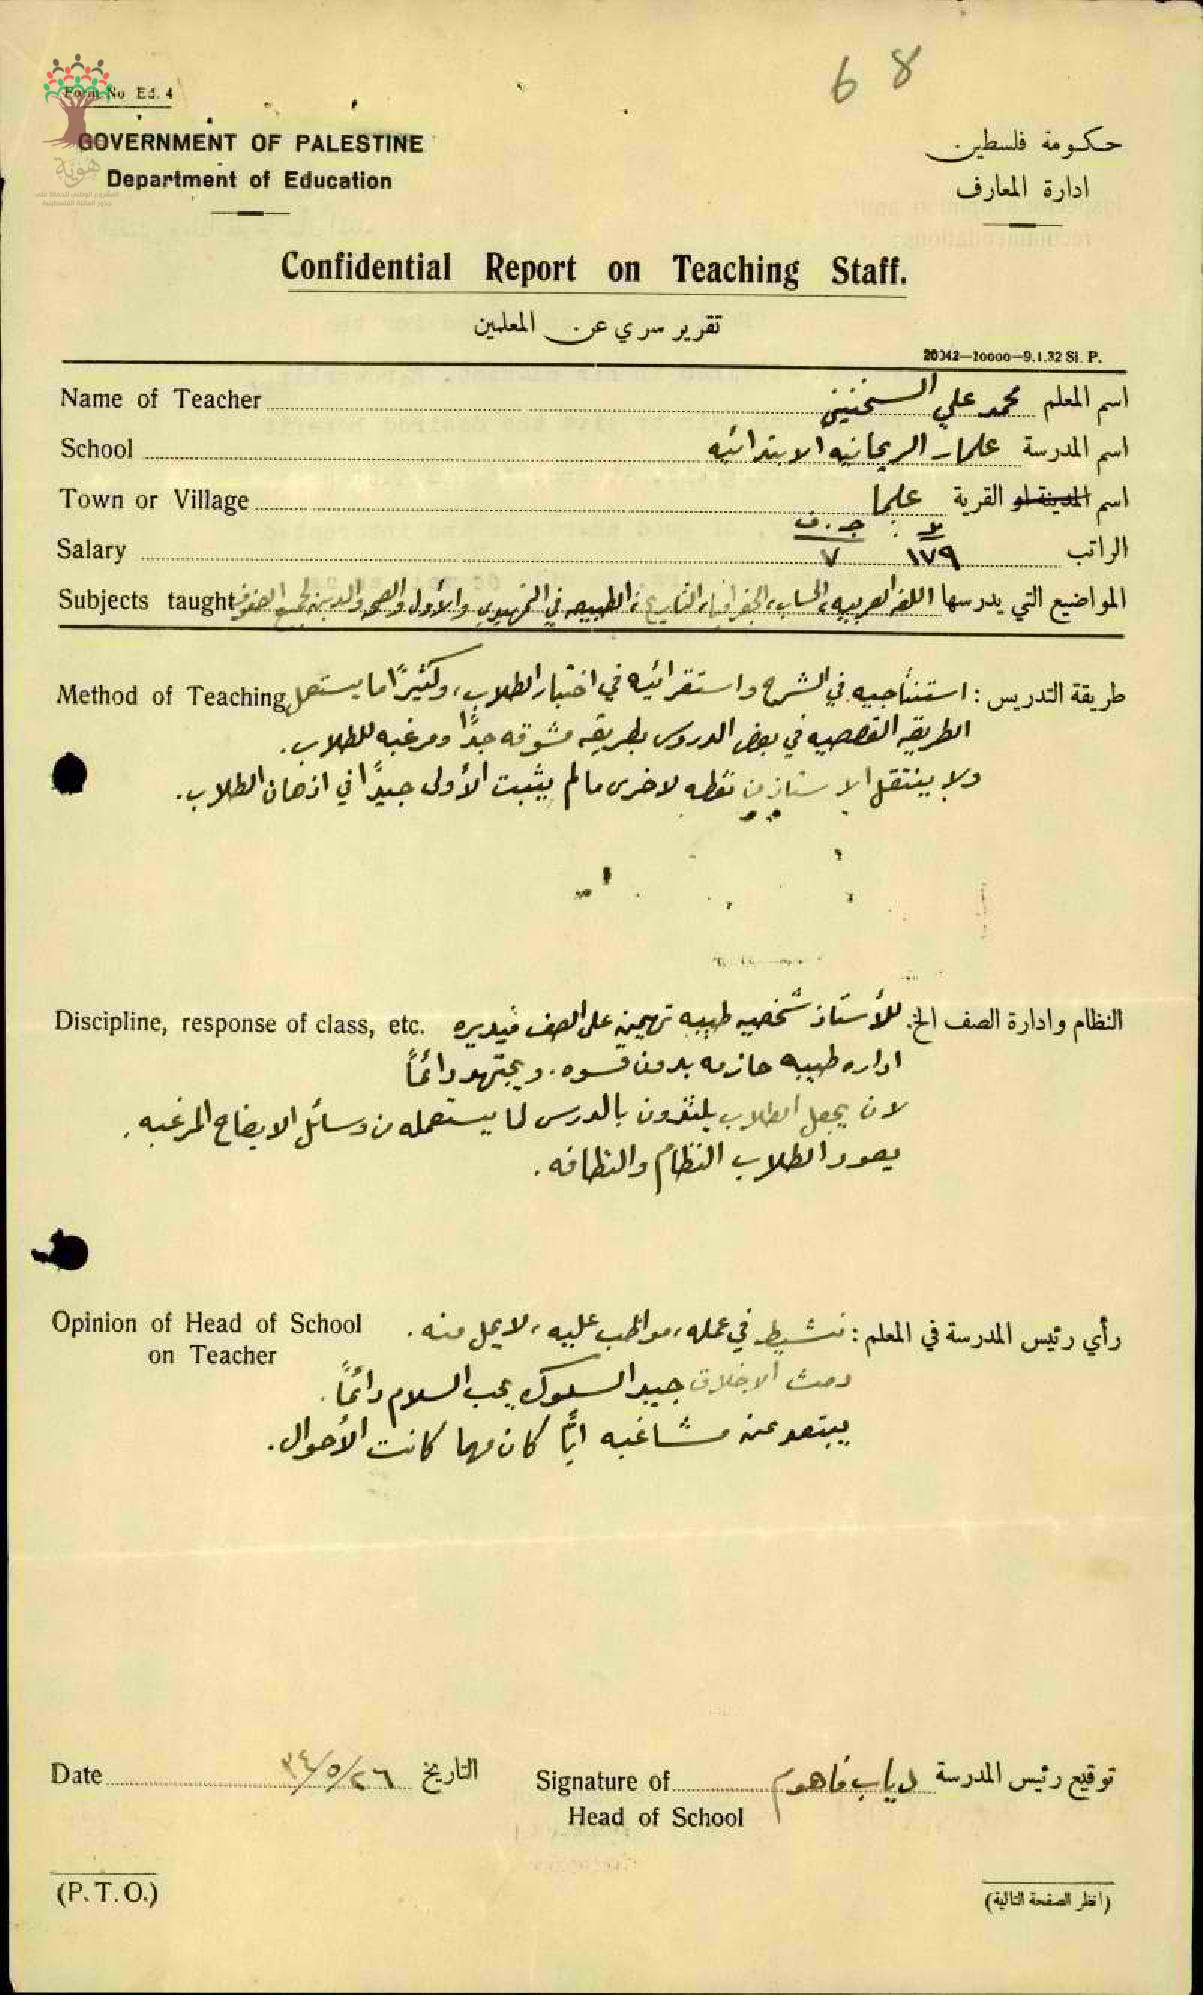 68
Form No Ed. 4
هوية
GOVERNMENT OF PALESTINE
Department of Education
حكومة فلسطين
ادارة المعارف
Confidential Report on Teaching Staff.
تقرير سري عن المعلمين
20042—10000—9.1.32 Sl. P.
Name of Teacher محمد علي السخنيني اسم المعلم
School علما الريحانيه الابتدائيه اسم المدرسة
Town or Village علما اسم المدينة او القرية
ج . ف
Salary ٧ ١٧٩ الراتب
Subjects taught المواضيع التي يدرسها اللغه العربيه، الحساب، الجغرافيا، التاريخ، الطبيعه في التمهيدي والأول والصحه والدين لجميع الصفوف
Method of Teaching طريقة التدريس : استنتاجيه في الشرح واستقرائيه في اختبار الطلاب، وكثيرًا ما يستعمل
الطريقه القصصيه في بعض الدروس بطريقه مشوقه جدًا ومرغبه للطلاب.
ولا ينتقل الاستاذ من نقطه لاخرى ما لم يثبت الأولى جيدًا في اذهان الطلاب.
Discipline, response of class, etc. النظام وادارة الصف الخ. للأستاذ شخصيه طيبه تهيمن على الصف فيديره
اداره طيبه حازمه بدون قسوه. ويجتهد دائمًا
لان يجعل الطلاب يلتذون بالدرس لما يستعمله من وسائل الايضاح المرغبه.
يعود الطلاب النظام والنظافه.
Opinion of Head of School رأي رئيس المدرسة في المعلم : نشيط في عمله، مواظب عليه، لا يمل منه.
on Teacher
دمث الاخلاق جيد السلوك يحب السلام دائمًا.
يبتعد عن مشاغبه ايًّا كان مهما كانت الأحوال.
Date ٢٦/٥/٣٤ التاريخ
Signature of دياب فاهوم توقيع رئيس المدرسة
Head of School
(P. T. O.)
(انظر الصفحة التالية)